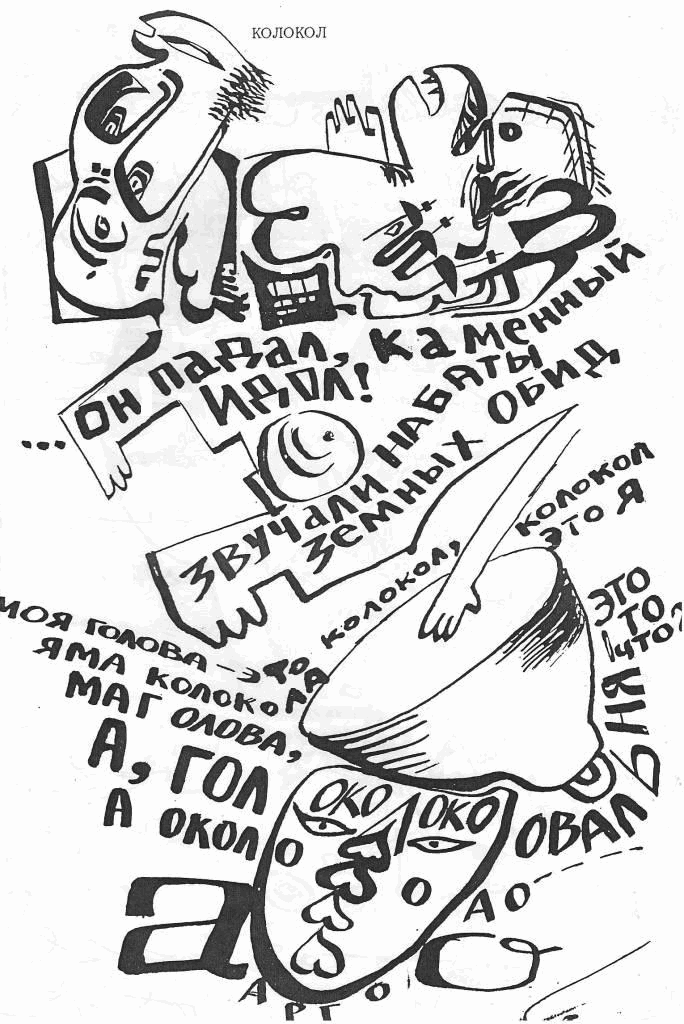 КОЛОКОЛ
...ОН ПАДАЛ, КАМЕННЫЙ
ИДОЛ!
ЗВУЧАЛИ НАБАТЫ
ЗЕМНЫХ ОБИД
КОЛОКОЛ,
КОЛОКОЛ
ЭТО Я
ЭТО
ТО,
ЧТО
МОЯ ГОЛОВА –
ЯМА КОЛОКОЛА
МАГ ОЛОВА,
А, ГОЛ
А ОКОЛО
ОКО ОКО
О
ОВАЛ
АО
а
О
АРГО